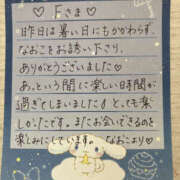 ♡ Fさま ♡
昨日は暑い日にもかかわらず
なおこをお誘い下さり、
ありがとうございました◇
あっという間に楽しい時間が
過ぎてしまいました とっても楽
しかったです。またお会いできるのを
楽しみにしています。なおこより♡